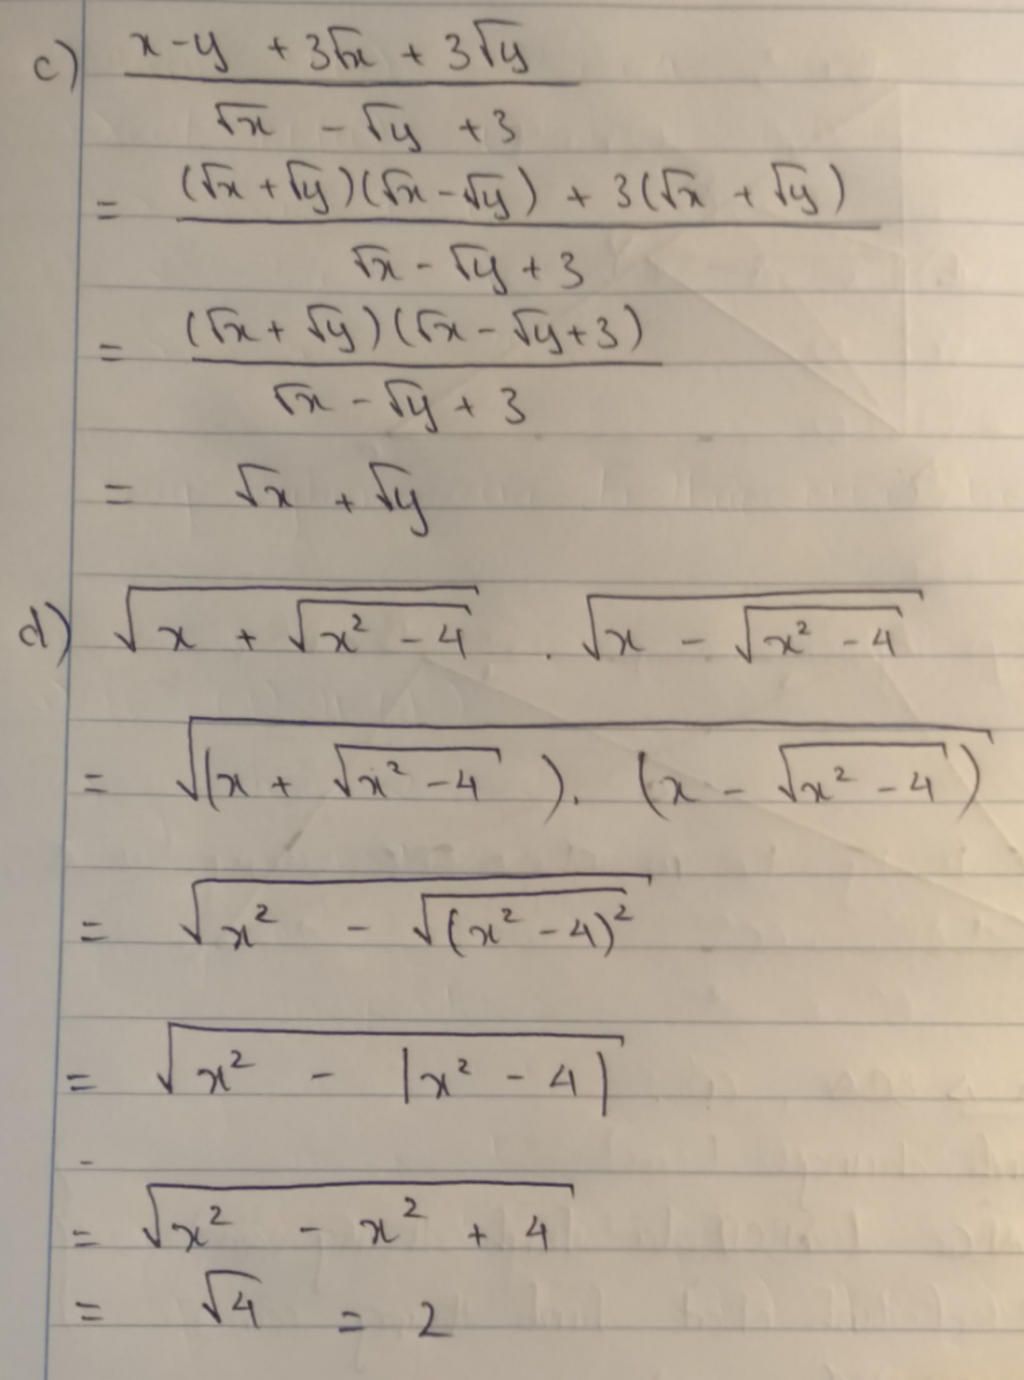 c) (x - y + 3√x + 3√y) / (√x - √y + 3)
= ((√x + √y)(√x - √y) + 3(√x + √y)) / (√x - √y + 3)
= ((√x + √y)(√x - √y + 3)) / (√x - √y + 3)
= √x + √y
d) √(x + √(x² - 4)) . √(x - √(x² - 4))
= √((x + √(x² - 4)) . (x - √(x² - 4)))
= √(x² - √((x² - 4)²))
= √(x² - |x² - 4|)
= √(x² - x² + 4)
= √4 = 2